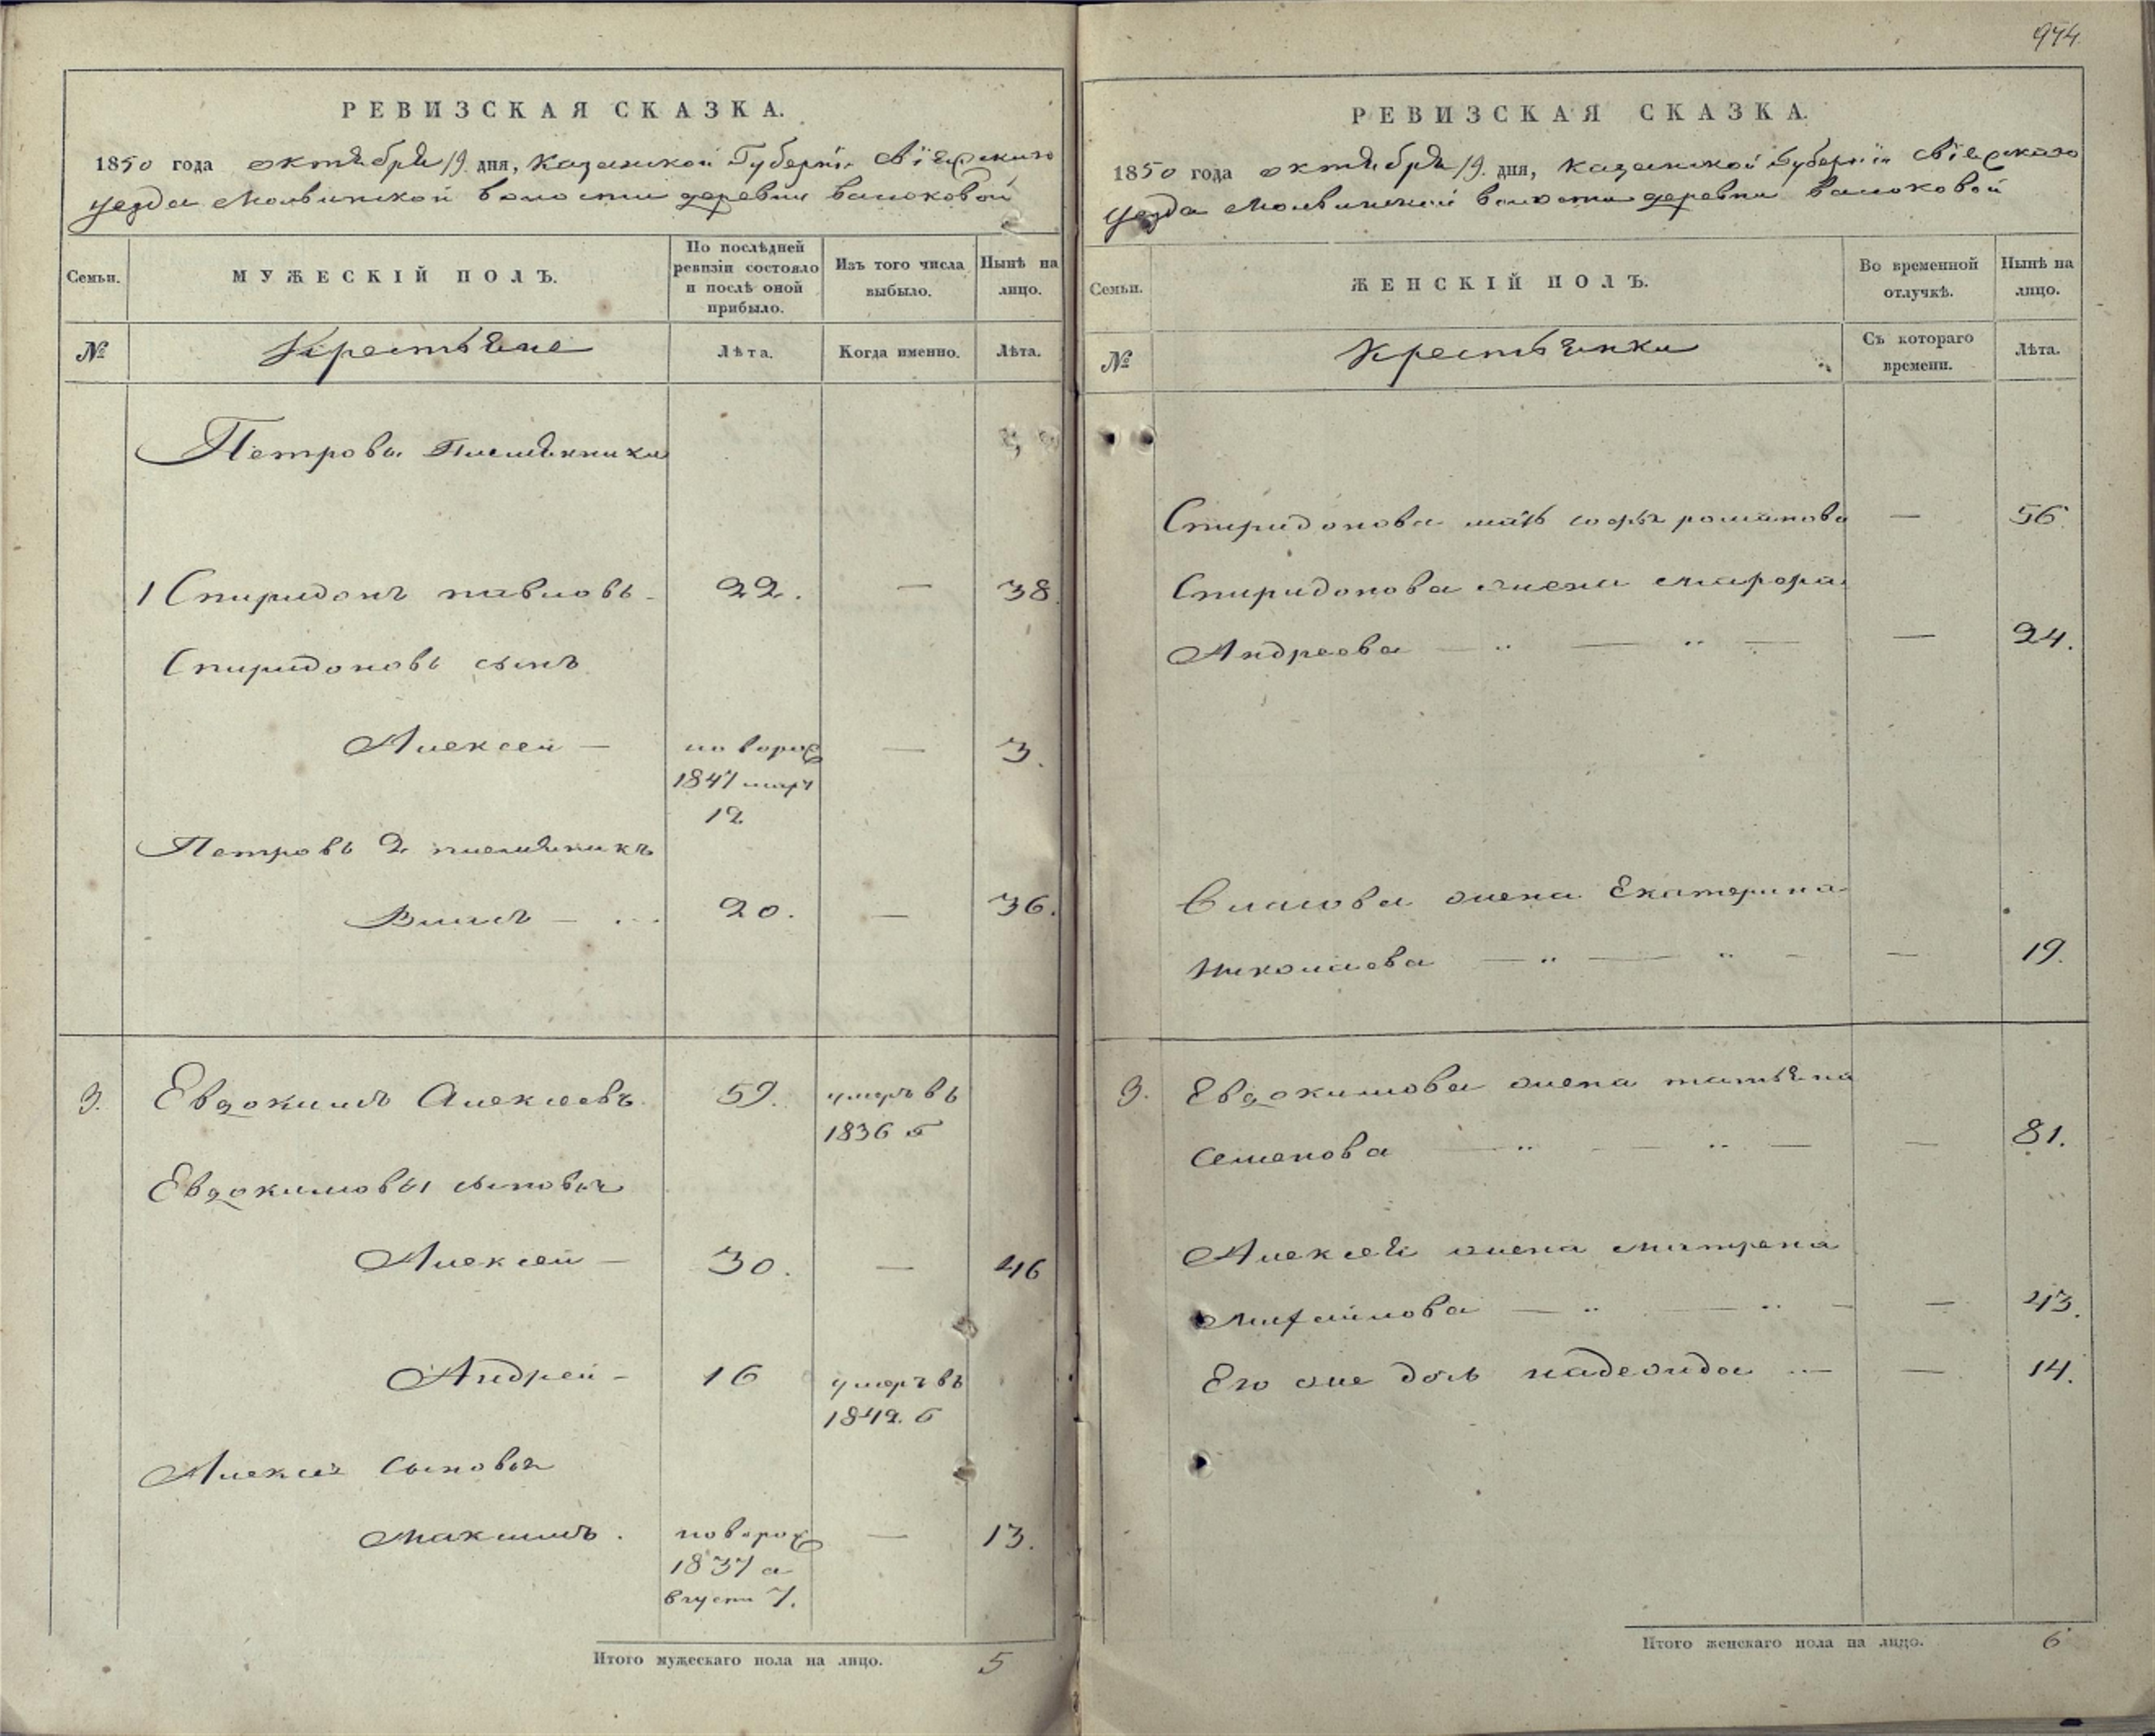 974.
РЕВИЗСКАЯ СКАЗКА.
1850 года октября 19. дня, Казанской Губерніи Свіяжскаго
уезда Мольвинской волости деревни Васюковой
Семьи.
МУЖЕСКІЙ ПОЛЪ.
По послѣдней ревизіи состояло и послѣ оной прибыло.
Изъ того числа выбыло.
Нынѣ на лицо.
№
Крестьяне
Лѣта.
Когда именно.
Лѣта.
Петровы Племянники
1 Спиридонъ павловъ - 22. — 38.
Спиридоновъ сынъ
Алексей — новорож — 3.
1847 март
12
Петровъ 2 племянникъ
Власъ — 20. — 36.
9. Евдокимъ Алексеевъ 59. умеръ въ
1836 г
Евдокимовы сыновья
Алексей — 30. — 46
Андрей - 16 умеръ въ
1842. г
Алексея сыновья
Максимъ. новорож — 13.
1837 а
вгуста 7.
Итого мужескаго пола на лицо. 5
РЕВИЗСКАЯ СКАЗКА.
1850 года октября 19. дня, Казанской Губерніи Свіяжскаго
уезда Мольвинской волости деревни Васюковой
Семьи.
ЖЕНСКІЙ ПОЛЪ.
Во временной отлучкѣ.
Нынѣ на лицо.
№
Крестьянки
Съ котораго времени.
Лѣта.
Спиридонова мать софья романова — 56.
Спиридонова жена Марфа
Андреева — 24.
Власова жена Екатерина
Николаева — 19.
9. Евдокимова жена татьяна
семенова — 81.
Алексея жена матрена
Михайлова — 43.
Его же дочь надежда — 14.
Итого женскаго пола на лицо. 6